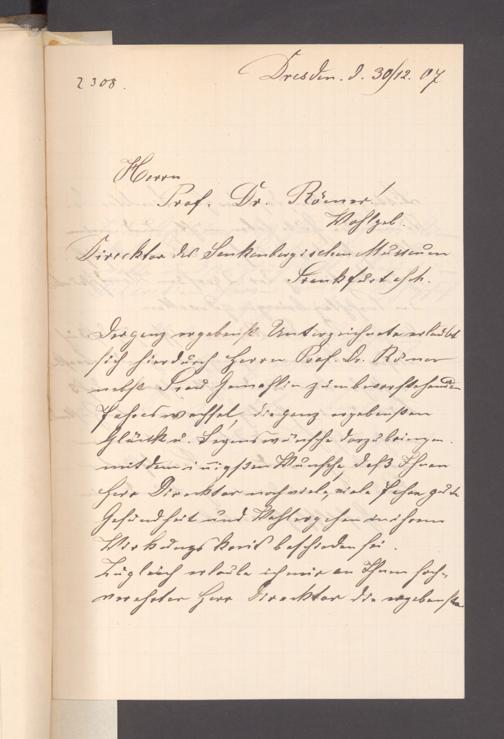 2308.
Dresden. d. 30/12. 07
Herrn
Prof. Dr. Römer!
Wohlgeb.
Direcktor des Senkenbergischen Museum
Frankfurt a/M.
Der ganz ergebenst Unterzeichnete erlaubt
sich hierdurch Herrn Prof. Dr. Römer
nebst Frau Gemahlin zum bevorstehenden
Jahreswechsel, die ganz ergebensten
Glück u. Segenswünsche darzubringen.
mit dem innigsten Wunsche daß Ihnen
Herr Direcktor noch viele, viele Jahre gute
Gesundheit und Wohlergehen in ihrem
Wirkungskreis beschieden sei.
Zugleich erlaube ich mir an Ihnen hoch-
verehrter Herr Direcktor die ergebenste